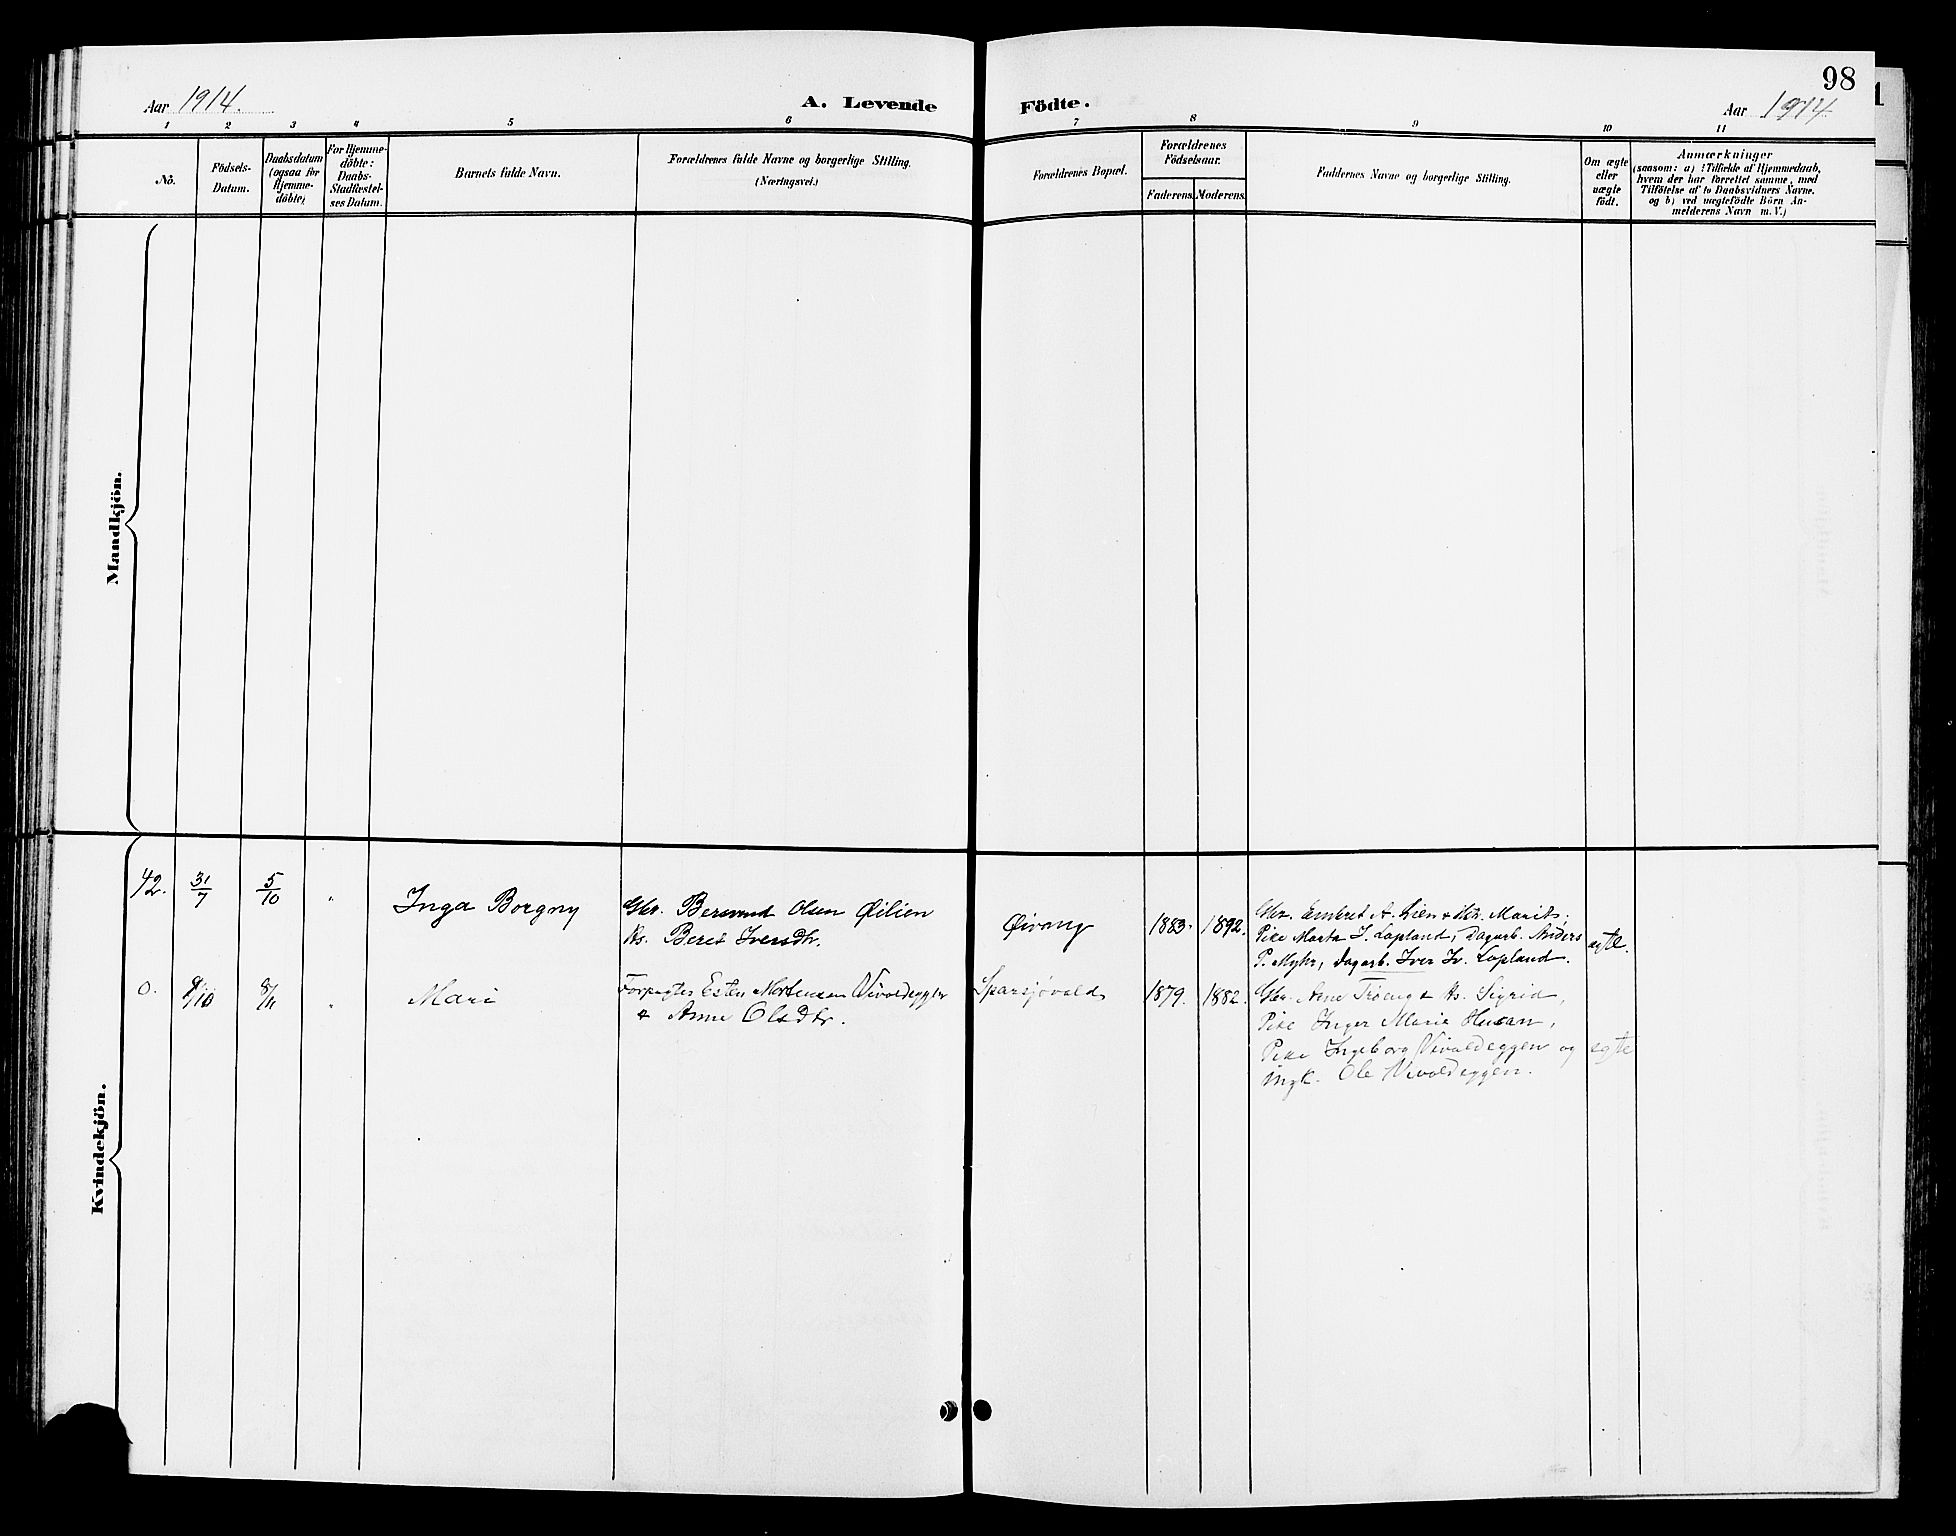 98
Aar 1914.
A. Levende Födte.
Aar 1914.
1 2 3 4 5 6 7 8 9 10 11
No.
Födsels-Datum.
Daabsdatum (ogsaa for Hjemme-döbte)
For Hjemme-döbte: Daabs-Stadfæstel-ses Datum.
Barnets fulde Navn.
Forældrenes fulde Navne og borgerlige Stilling. (Næringsvei.)
Forældrenes Bopæl.
Forældrenes Födselsaar.
Faderens. Moderens.
Faddernes Navne og borgerlige Stilling.
Om ægte eller uægte födt.
Anmærkninger
(saasom: a) i Tilfælde af Hjemmedaab,
hvem der har forrettet samme, med
Tilföielse af to Daabsvidners Navne.
og b) ved uægtefödte Börn An-
melderens Navn m. V.)
Mandkjön.
Kvindekjön.
42. 31/7 5/10 " Inga Borgny
Gbr. Bersvend Olsen Øilien
Ks. Beret Iversdtr.
Øivang 1883. 1892.
Gbr. Embret A. Lien & Ks. Marit;
Pike Marta I. Lapland, Dagarb. Anders
P. Myhr, Dagarb. Iver Iv. Lapland.
ægte.
0. 9/10 8/11 " Mari
Forpagter Esten Mortensen Vivoldeggen
& Anne Olsdtr.
Sparsjøvold 1879. 1882.
Gbr. Arne Trøeng & Ks. Sigrid,
Pike Inger Marie Husan,
Pike Ingeborg Vivoldeggen og
Ungk. Ole Vivoldeggen.
ægte